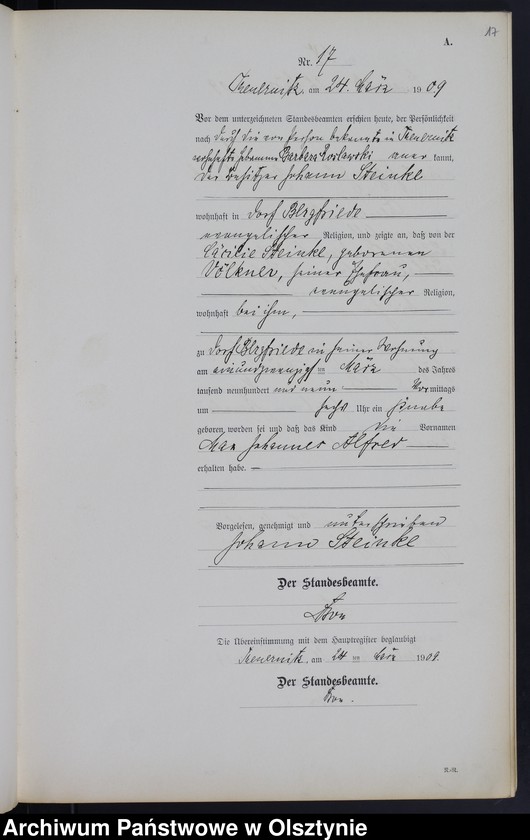 17
A.
Nr. 17
am 24. März 1909
Vor dem unterzeichneten Standesbeamten erschien heute, der Persönlichkeit
nach durch die von Person bekannte in
wohnhafte Hebamme Barbara kannt,
der Besitzer Johann Steinke
wohnhaft in Dorf Bergfriede
evangelischer Religion, und zeigte an, daß von der
Cäcilie Steinke, geborenen
Völkner, seiner Ehefrau,
evangelischer Religion,
wohnhaft bei ihm,
zu Dorf Bergfriede in seiner Wohnung
am einundzwanzigsten März des Jahres
tausend neunhundert und neun Vormittags
um sechs Uhr ein Knabe
geboren worden sei und daß das Kind die Vornamen
Max Johannes Alfred
erhalten habe.
Vorgelesen, genehmigt und unterschrieben
Johann Steinke
Der Standesbeamte.
Die Übereinstimmung mit dem Hauptregister beglaubigt
am 24 ten März 1909.
Der Standesbeamte.
Archiwum Państwowe w Olsztynie